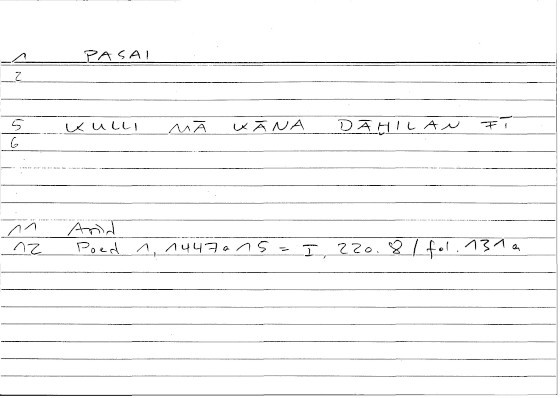 1 PASAI
2
5 KULLI MĀ KĀNA DĀHILAN FĪ
6
11
12 Poed 1, 1447a15 = I, 220.8 / fol. 131a